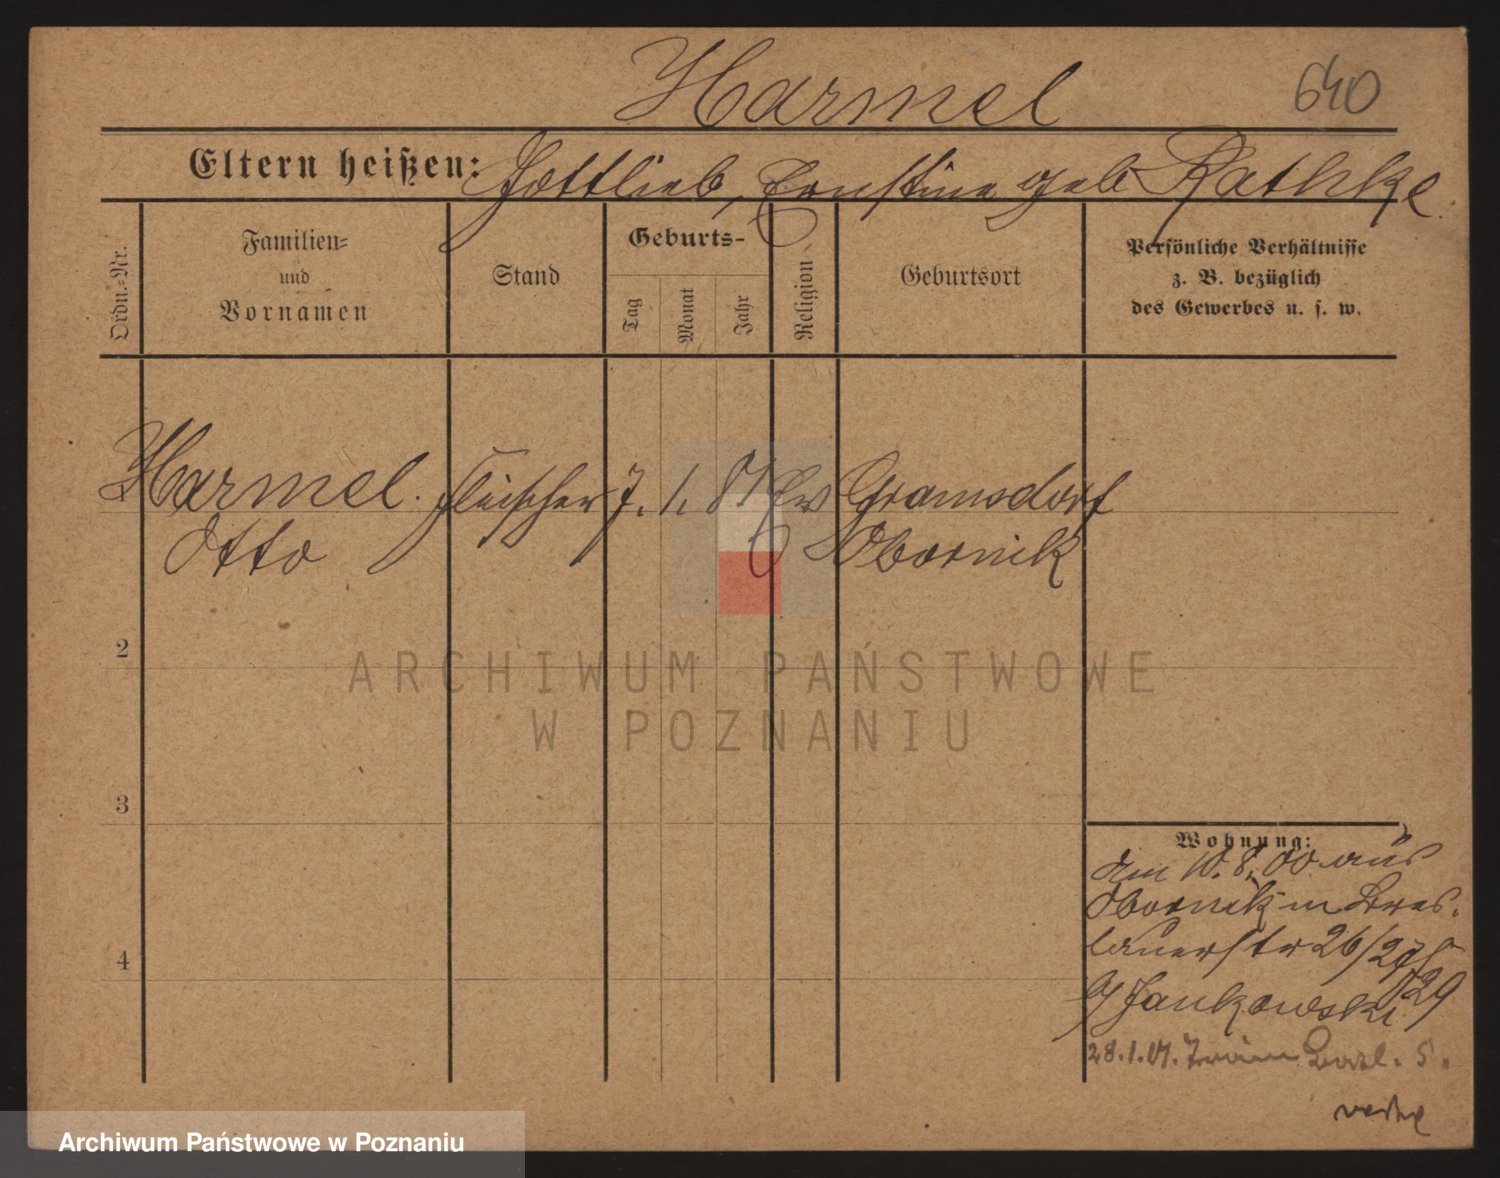 Harmel
640
Eltern heißen: Gottlieb, Ernstine geb Rathke
Ordn.-Nr.
Familien-
und
Vornamen
Stand
Geburts-
Tag
Monat
Jahr
Religion
Geburtsort
Persönliche Verhältnisse
z. B. bezüglich
des Gewerbes u. s. w.
Harmel. Fleischer 7. 1. 81 Ev Gramsdorf
Otto Obornik
2
3
4
Wohnung:
Am 10. 8. 00 aus
Obornik in Bres-
lauerstr 26/27
b/ Jankowski 29
28.1.01.
ARCHIWUM PAŃSTWOWE
W POZNANIU
Archiwum Państwowe w Poznaniu